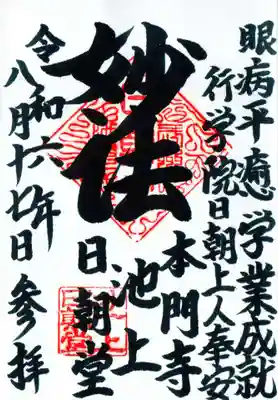 眼病平癒学業成就
行学院日朝上人奉安
妙法
本門寺
池上
日朝堂
令和六年
八月十七日参拝